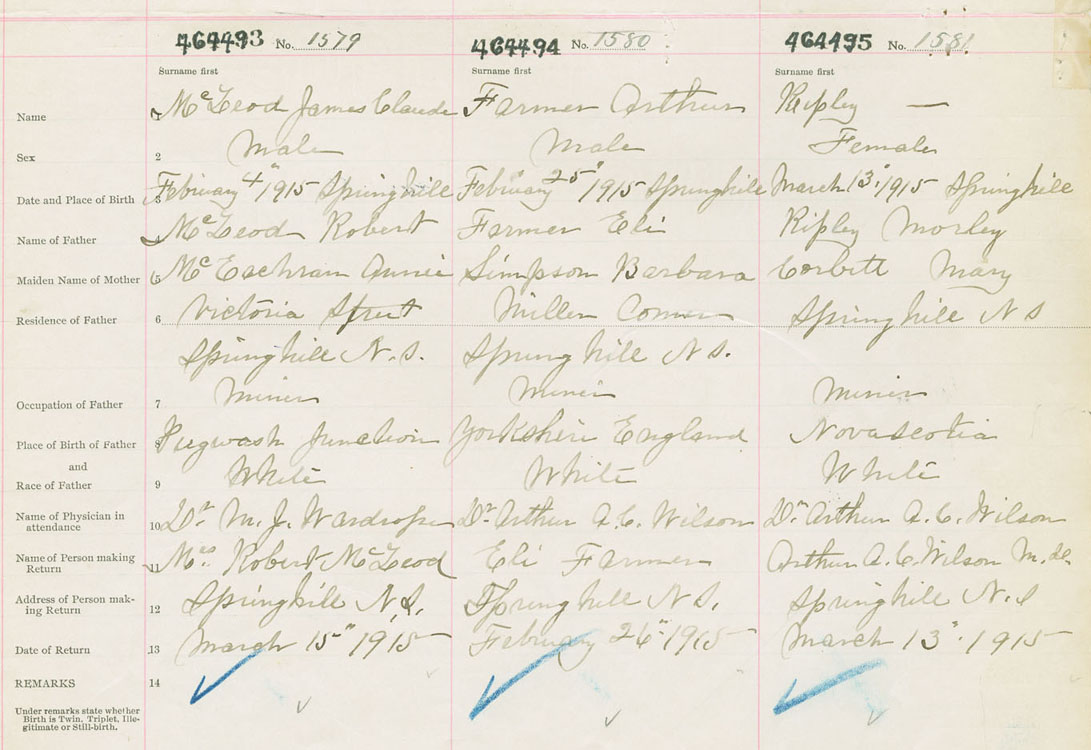 464493 No. 1579 464494 No. 1580 464495 No. 1581
Surname first Surname first Surname first
Name 1 McLeod James Claude Farmer Arthur Ripley —
Sex 2 Male Male Female
Date and Place of Birth 3 February 4" 1915 Springhill February 25" 1915 Springhill March 13" 1915 Springhill
Name of Father 4 McLeod Robert Farmer Eli Ripley Morley
Maiden Name of Mother 5 McEachran Annie Simpson Barbara Corbett Mary
Residence of Father 6 Victoria Street Miller Corner Springhill N S
Springhill N.S. Springhill N S.
Occupation of Father 7 Miner Miner Miner
Place of Birth of Father 8 Pugwash Junction Yorkshire England Nova scotia
and
Race of Father 9 White White White
Name of Physician in
attendance 10 Dr M. J. Wardrope Dr Arthur A. C. Wilson Dr Arthur A. C. Wilson
Name of Person making
Return 11 Mrs. Robert McLeod Eli Farmer Arthur A. C. Wilson M.
Address of Person mak-
ing Return 12 Springhill N.S. Springhill N S. Springhill N.S
Date of Return 13 March 15" 1915 February 26" 1915 March 13". 1915
REMARKS 14
Under remarks state whether
Birth is Twin, Triplet, Ille-
gitimate or Still-birth.